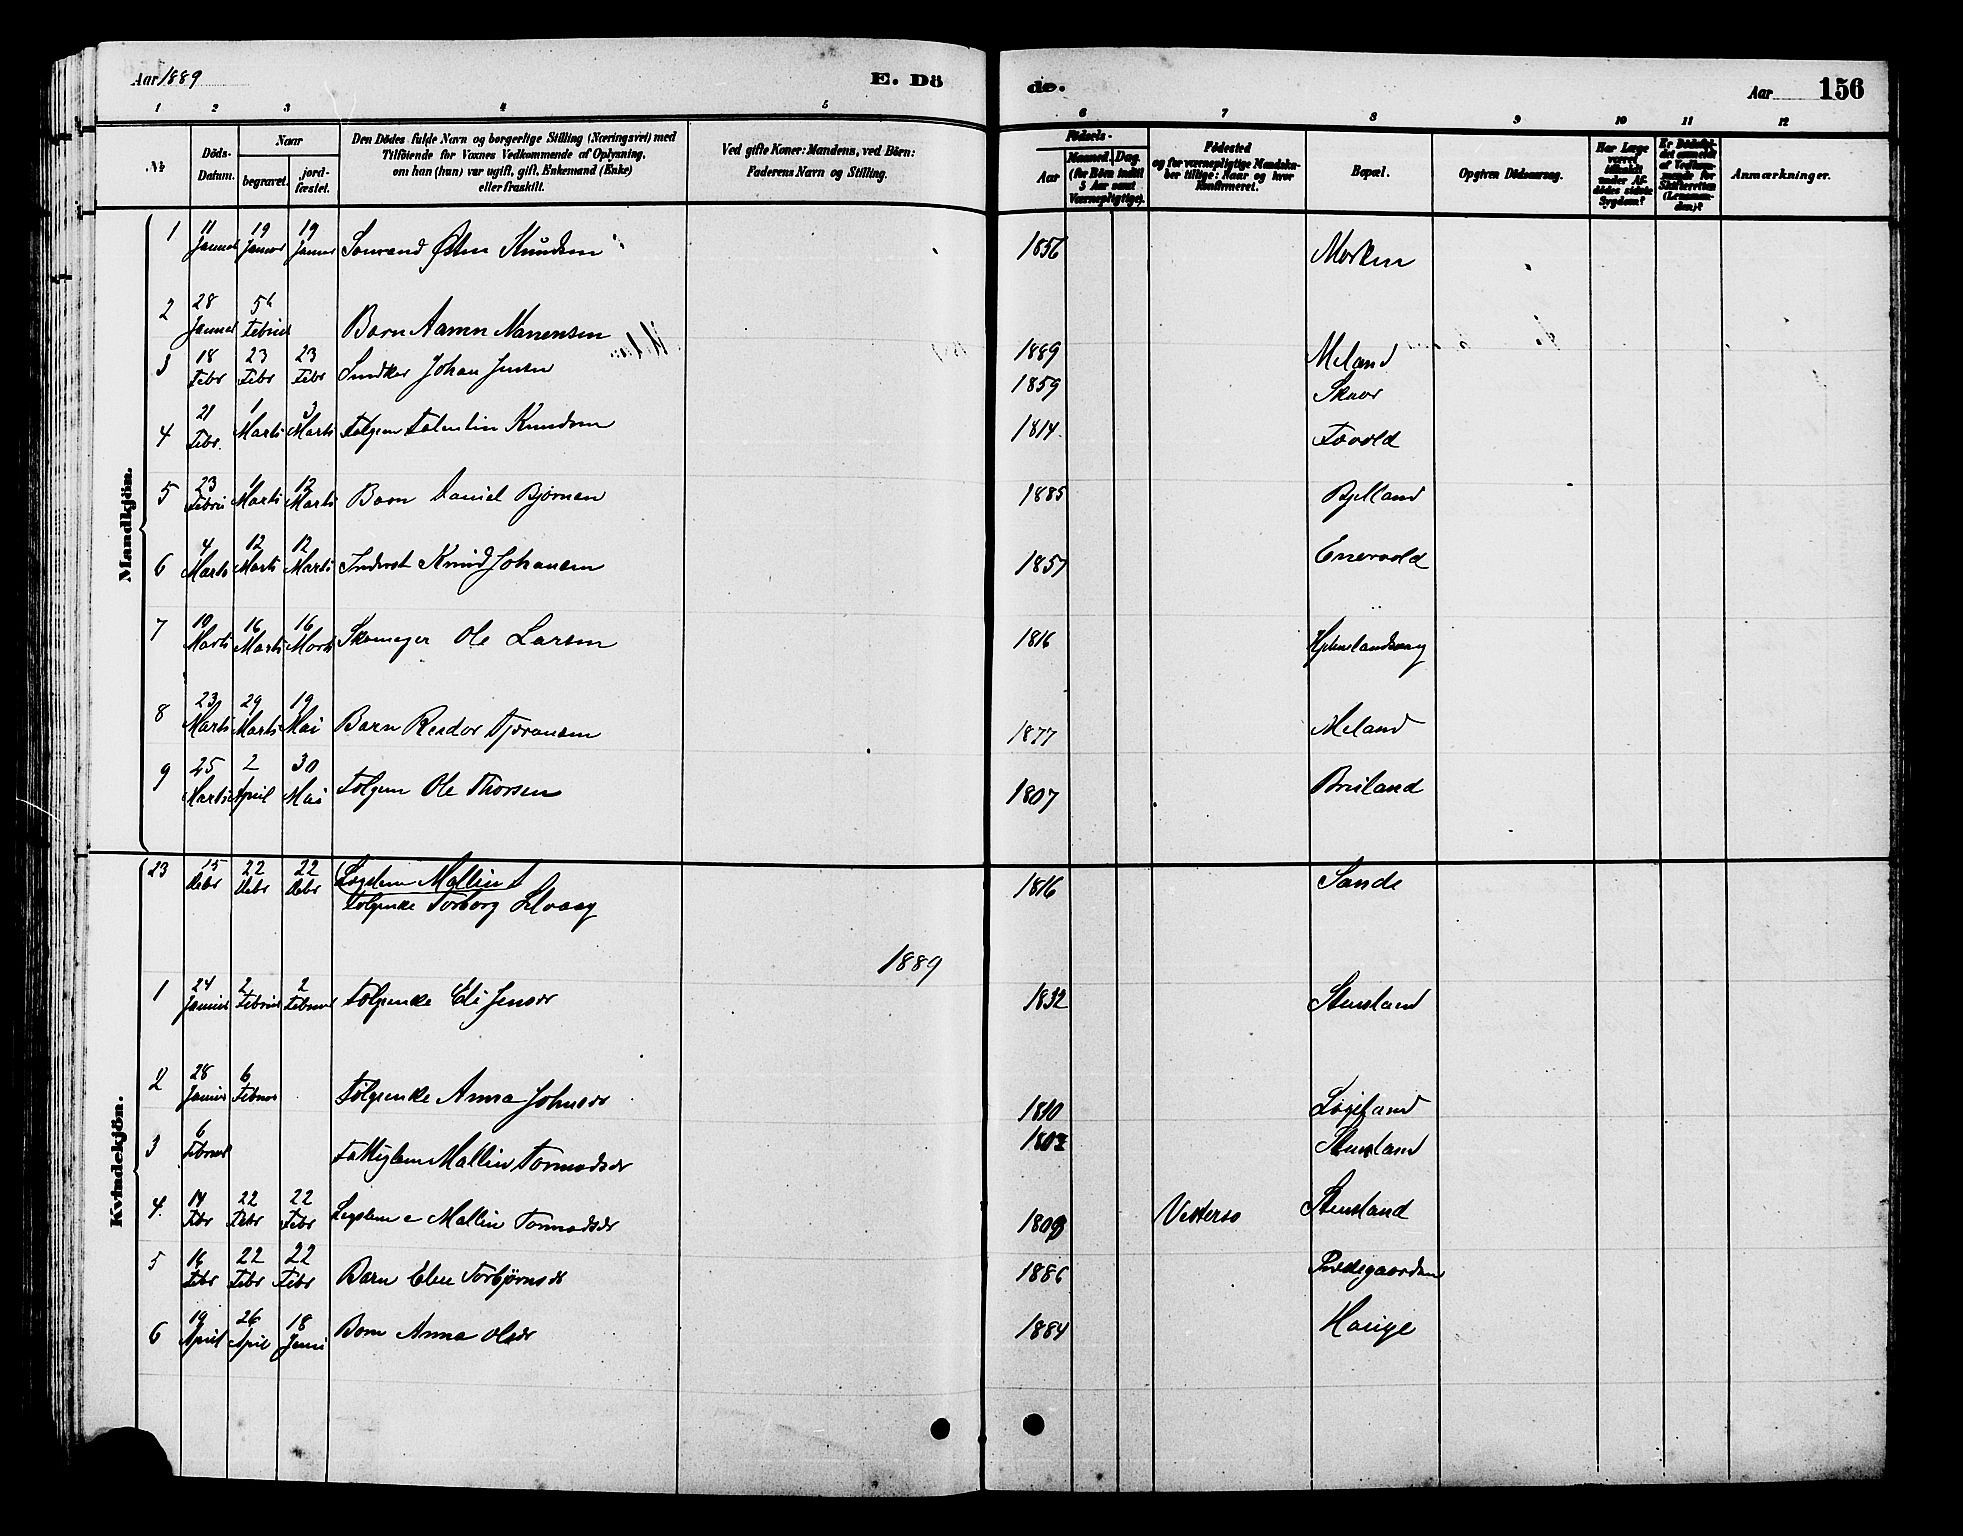 Aar 1889
E. Dö
de.
Aar 156
1 2 3 4 5 6 7 8 9 10 11 12
№
Döds-Datum.
Naar
begravet.
jord-fæstet.
Den Dödes fulde Navn og borgerlige Stilling (Næringsvei) med
Tilföiende for Voxnes Vedkommende af Oplysning,
om han (hun) var ugift, gift, Enkemand (Enke)
eller fraskilt.
Ved gifte Koner: Mandens, ved Börn:
Faderens Navn og Stilling.
Födsels-
Aar
Maaned. Dag.
(for Börn indtil
5 Aar samt
Værnepligtige).
Födested
og for værnepligtige Mandska-
ber tillige: Naar og hvor
konfirmeret.
Bopæl.
Opgiven Dödsaarsag.
Har Læge
været
tilkaldt
under Af-
dödes sidste
Sygdom?
Er Dödsfal-
det anmeldt
af Vedkom-
mende for
Skifteretten
(Lensman-
den)?
Anmærkninger.
Mandkjön.
1 11 Januar 19 Januar 19 Januar Knudsen 1856
2 28 Januar 5 Februar Barn Aamn Nanensen 1889 Meland
3 18 Febr 23 Febr 23 Febr Johan Jensen 1859 Skaar
4 21 Febr. 1 Marts 3 Marts Knudsen 1814.
5 23 Februar 1 Marts 12 Marts Barn Daniel Bjørnsen 1885 Bjelland
6 4 Marts 12 Marts 12 Marts Inderst Knud Johansen 1857 Enervold
7 10 Marts 16 Marts 16 Marts Skomager Ole Larsen 1816
8 23 Marts 29 Marts 19 Mai Barn Reidar 1877 Meland
9 25 Marts 2 April 30 Mai Følgem Ole Thorsen 1807
Kvindekjön.
23 15 Debr 22 Debr 22 Debr Lægdslem Mallin
Følgenke Torborg 1816 Sande
1889
1 24 Januar 2 Februar 2 Februar Følgenke Eli Jensdr 1832 Stensland
2 28 Januar 6 Februar Følgenke Anna Johnsdr 1810
3 6 Februar Mallin Tormodsdr 1802 Stensland
4. 14 Febr 22 Febr 22 Febr Mallin Tormodsdr 1808 Stensland
5 16 Febr 22 Febr 22 Febr Barn Elen Torbjørnsdr 1886 Prestegaarden
6 19 April 26 April 18 Juni Barn Anna Olsdr 1884 Hauge